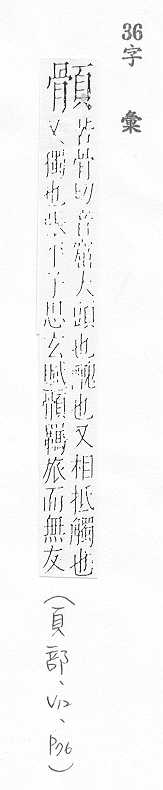 36字 彙
顝
苦骨切音窟大頭也醜也又相抵觸也
又獨也張平子思玄賦顝羈旅而無友
(頁部、V12、P76)